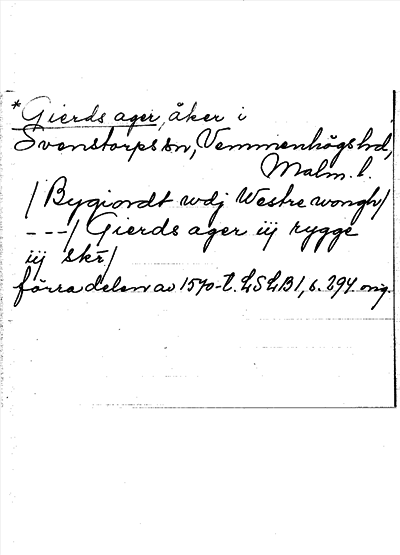 *Gierds ager, åker i
Svenstorps sn, Vemmenhögs hd,
Malm. l.
/ Bygiordt wdj Westre wongh/
---/ Gierds ager iij rygge
iij skr/
förra delen av 1570-t. LSLB1, s. 294. orig.